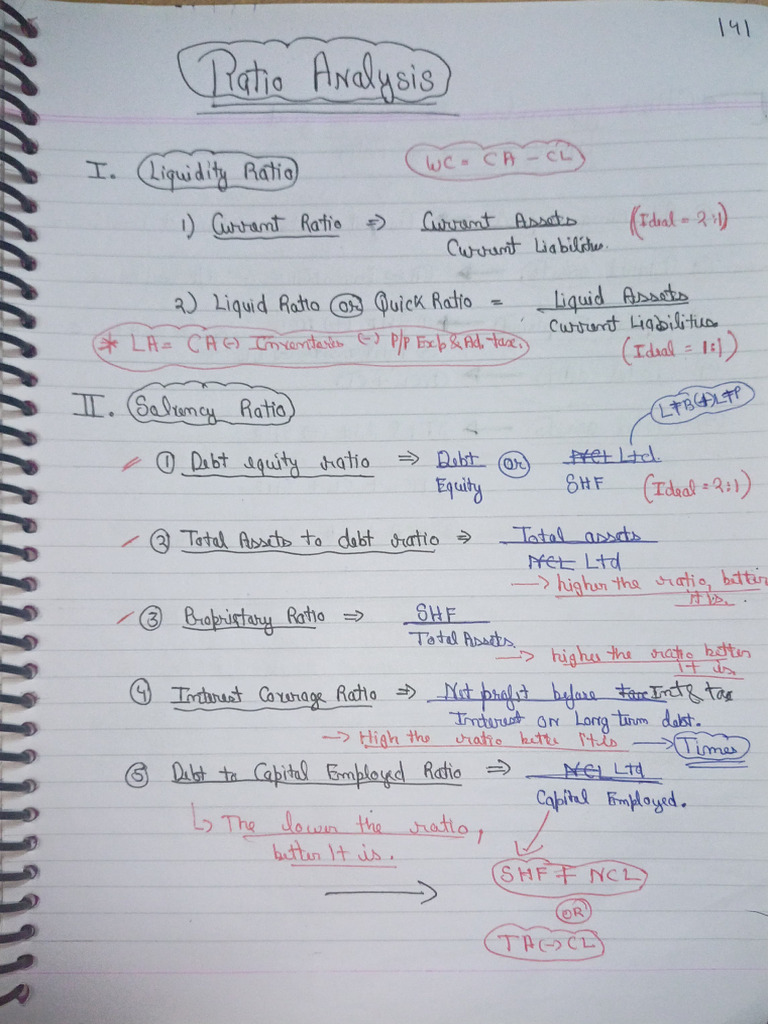 141
Ratio Analysis
I. Liquidity Ratio
WC = CA - CL
1) Current Ratio ⇒ Current Assets (Ideal = 2:1)
Current Liabilities.
2) Liquid Ratio OR Quick Ratio = Liquid Assets
Current Liabilities
* LA = CA (-) Inventories (-) P/P Exp & Ad. tax.
(Ideal = 1:1)
II. Solvency Ratio
LTB (+) LTP
① Debt equity ratio ⇒ Debt OR NCL Ltd.
Equity SHF (Ideal = 2:1)
② Total Assets to debt ratio ⇒ Total assets
NCL Ltd
→ higher the ratio, better
it is.
③ Propristary Ratio ⇒ SHF
Total Assets.
→ higher the ratio better
It is
④ Interest Coverage Ratio ⇒ Net profit before tax Int & tax
Interest on Long term debt.
→ High the ratio bette it is → Times
⑤ Debt to Capital Employed Ratio ⇒ NCL Ltd
Capital Employed.
↳ The lower the ratio,
better It is.
SHF + NCL
OR
TA (-) CL